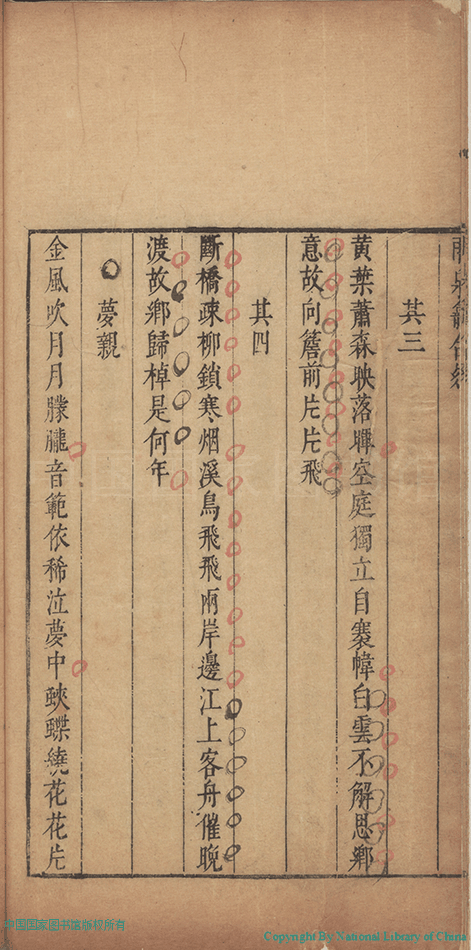 其三
黄葉蕭森映落暉空庭獨立自褰幃白雲不解思鄉
意故向簷前片片飛
其四
斷橋疎柳鎖寒烟溪鳥飛飛兩岸邊江上客舟催晚
渡故鄉歸棹是何年
夢親
金風吹月月朦朧音範依稀泣夢中蛺蝶繞花花片
中国国家图书馆版权所有
Copyright By National Library of China